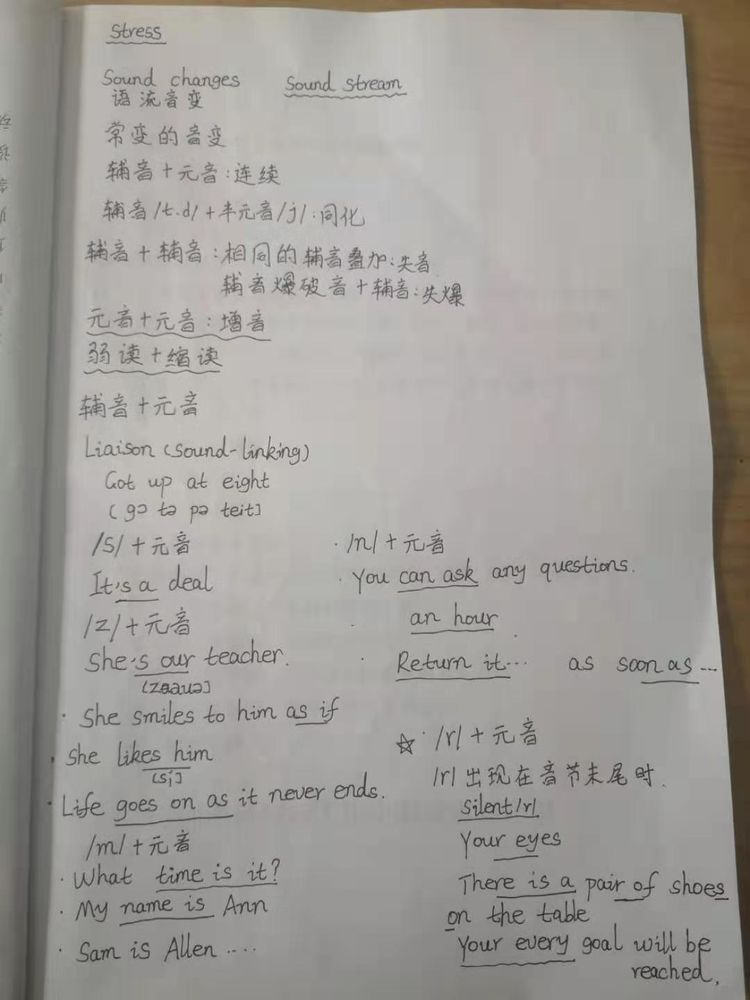 Stress
Sound changes
Sound stream
语流音变
常变的音变
辅音+元音:连续
辅音/t.d/+半元音/j/:同化
辅音+辅音:相同的辅音叠加:失音
辅音爆破音+辅音:失爆
元音+元音:增音
弱读+缩读
辅音+元音
Liaison (sound-linking)
Got up at eight
[gɔ tə pə teit]
/s/+元音
It's a deal
/z/+元音
She's our teacher.
She smiles to him as if
she likes him
[si]
Life goes on as it never ends.
/m/+元音
· What time is it?
· My name is Ann
· Sam is Allen ....
· /n/+元音
· You can ask any questions.
· an hour
· Return it... as soon as...
☆· /r/+元音
/r/出现在音节末尾时.
silent/r/
Your eyes
There is a pair of shoes
on the table
Your every goal will be
reached,